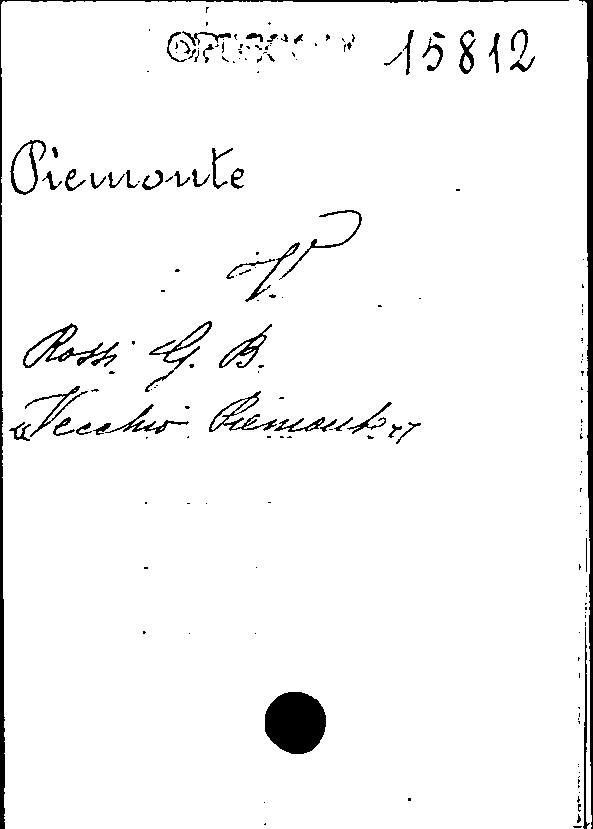 15812
Piemonte
V.
Rossi G. B.
"Vecchio Piemonte"